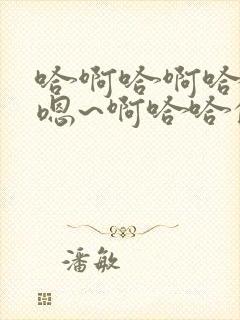 哈啊哈啊哈
嗯~啊哈哈
潘敏